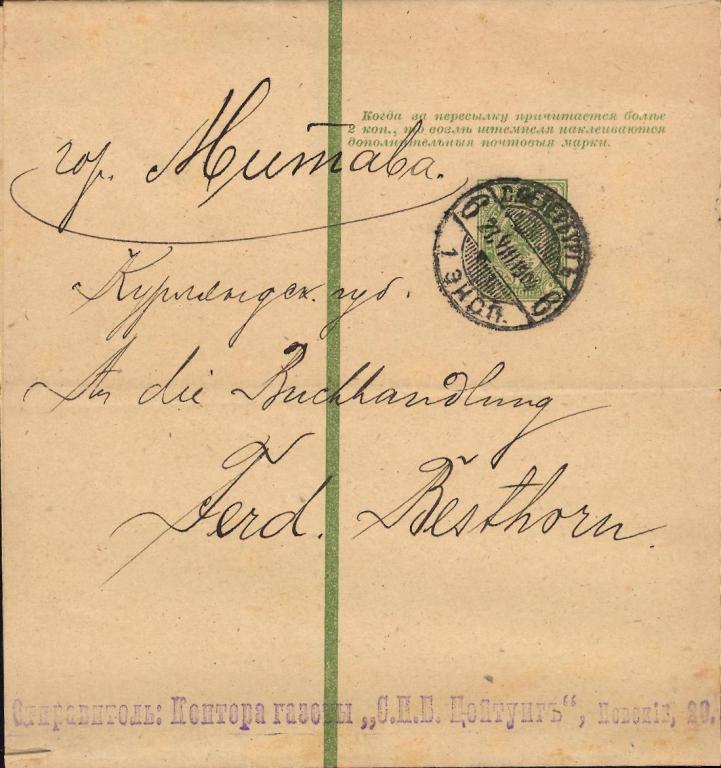 Когда за пересылку причитается болѣе
2 коп., то возлѣ штемпеля наклеиваются
дополнительныя почтовыя марки.
гор. Митава.
С.ПЕТЕРБУРГЪ
6 6
1 ЭКСП.
Курляндск. губ.
An die Buchhandlung
Ferd. Besthorn.
Отправитель: Контора газеты „С.П.Б. Цейтунгъ“, Невскій, 20.